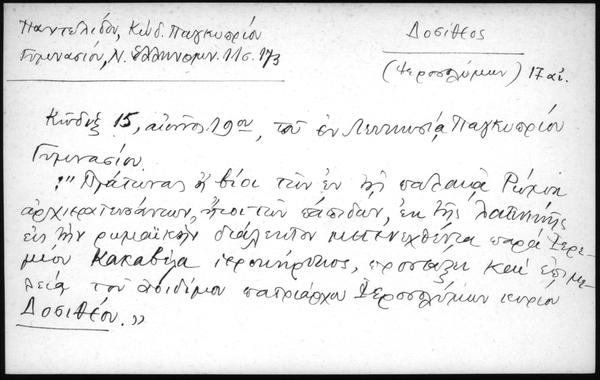 Παντελίδου, Κώδ. Παγκυπρίου
Γυμνασίου, Ν. Ελληνομν. 11 σ. 173
Δοσίθεος
(Ἱεροσολύμων) 17 αἰ.
Κῶδιξ 15, αἰῶνος 19ου, τοῦ ἐν Λευκωσίᾳ Παγκυπρίου
Γυμνασίου
"Πλάτινας ἢ βίοι τῶν ἐν τῇ παλαιᾷ Ῥώμῃ
ἀρχιερατευσάντων, ἤτοι τῶν πάπιδων, ἐκ τῆς λατινικῆς
εἰς τὴν ρωμαϊκὴν διάλεκτον μετενεχθέντα παρὰ Ἱερε-
μίου Κακαβέλα ἱεροκήρυκος, προστάξει καὶ ἐπιμε-
λείᾳ τοῦ ἀοιδίμου πατριάρχου Ἱεροσολύμων κυρίου
Δοσιθέου."